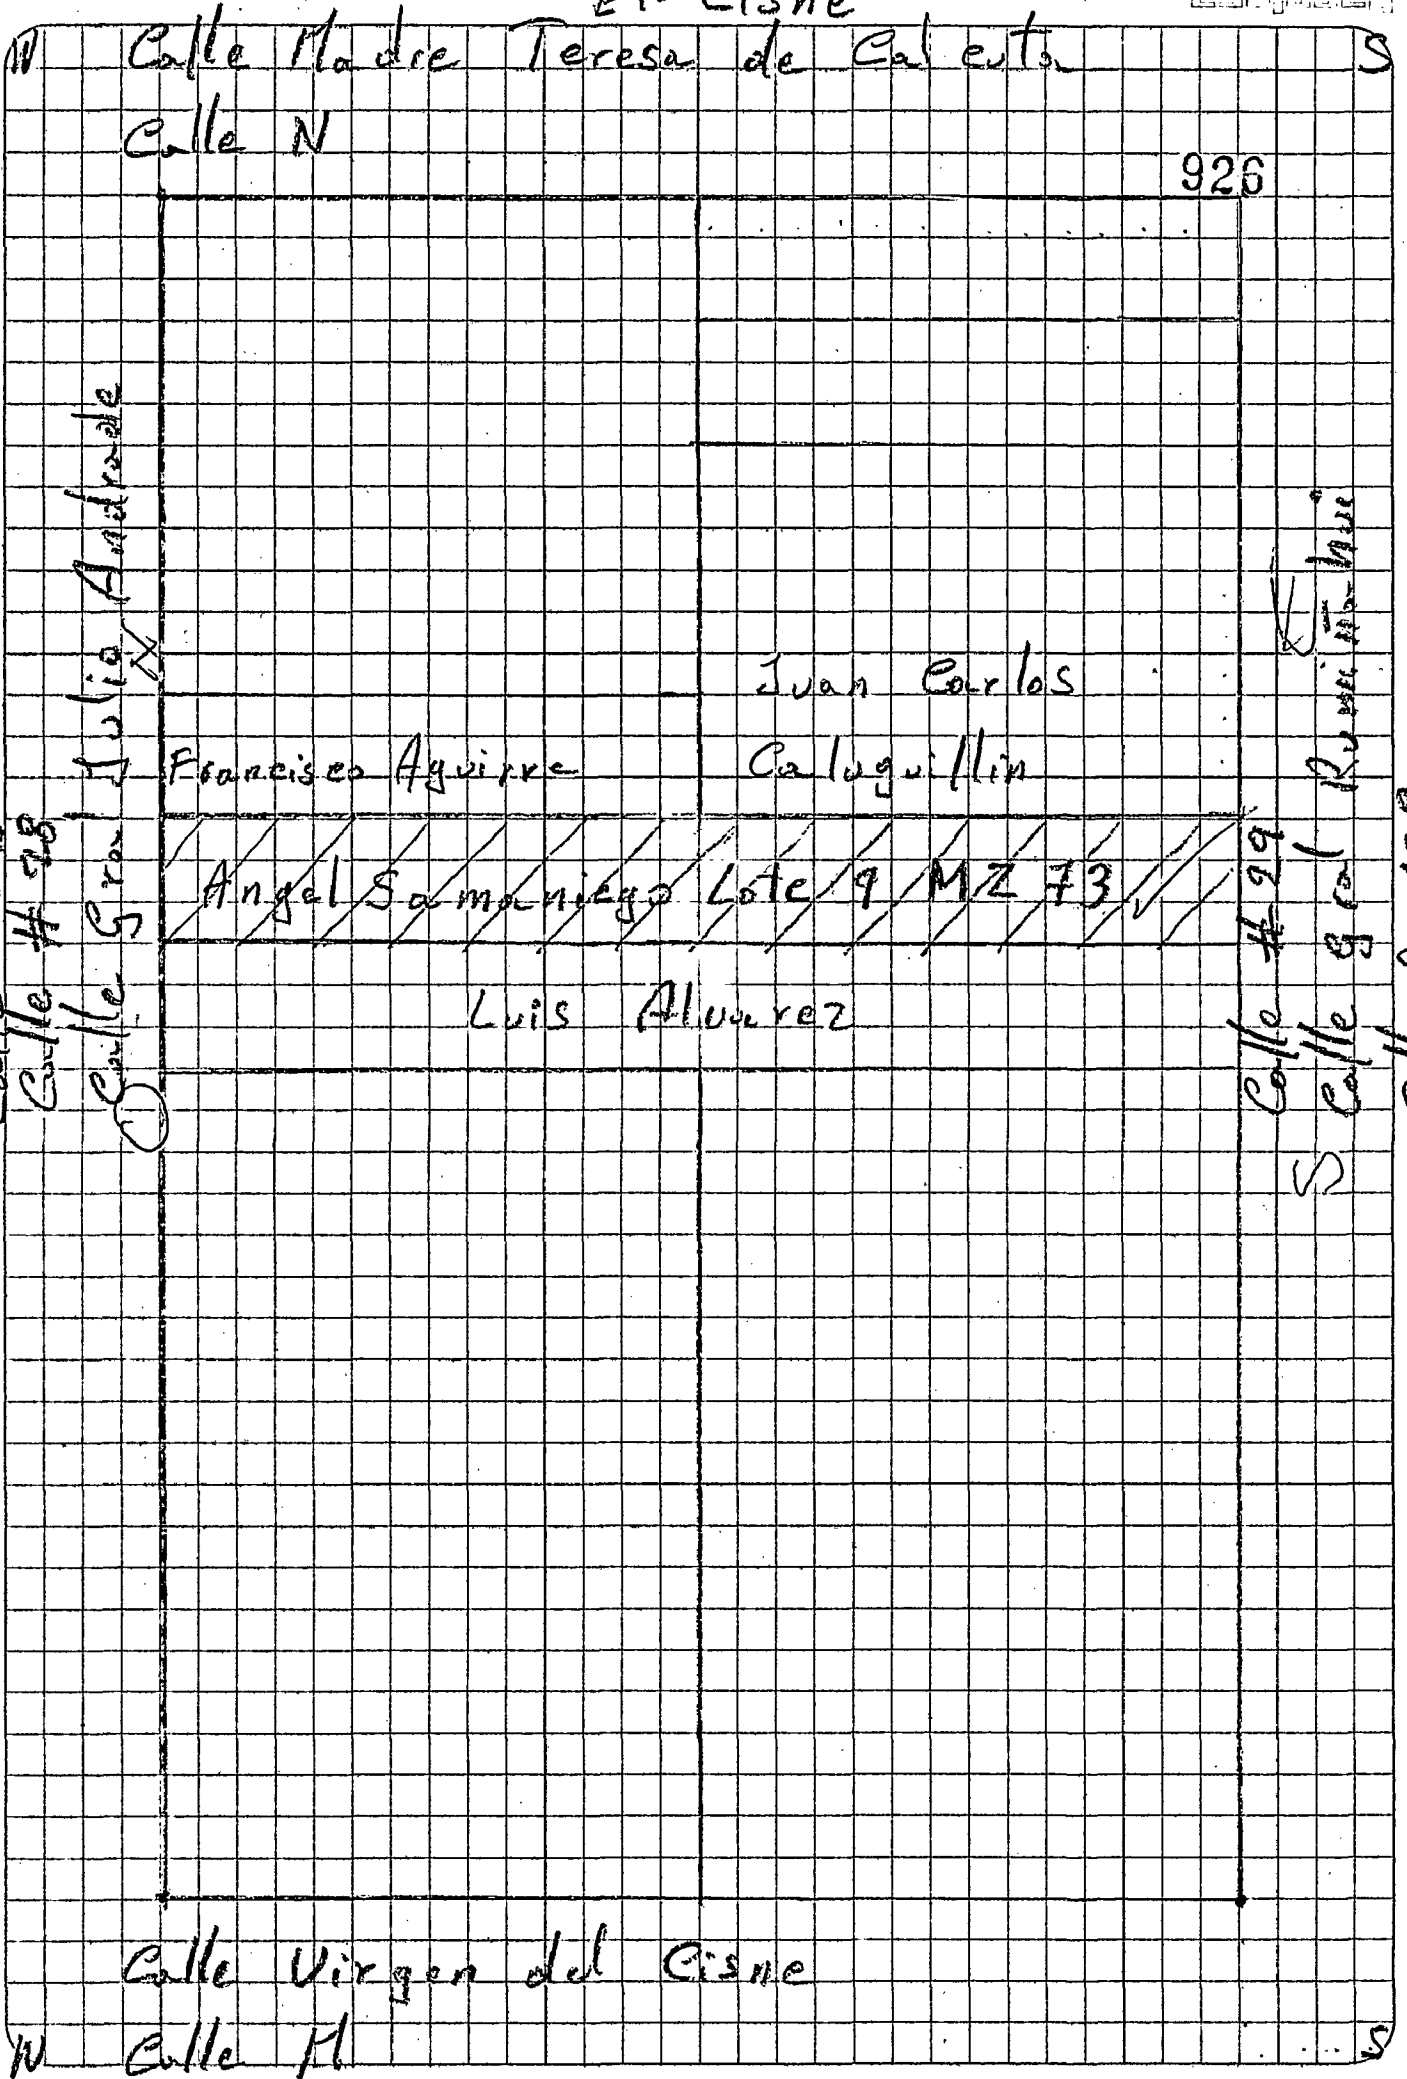 El Cisne
N Calle Madre Teresa de Calcuta S
Calle N
926
Calle # 98
Calle Gral Julio Andrade
N
Juan Carlos
Francisco Aguirre Caluguillin
Angel Samaniego Lote 9 MZ 73
Luis Alvarez
Calle # 99
Calle gral Rumiñahui
S
Calle Virgen del Cisne
N Calle M S